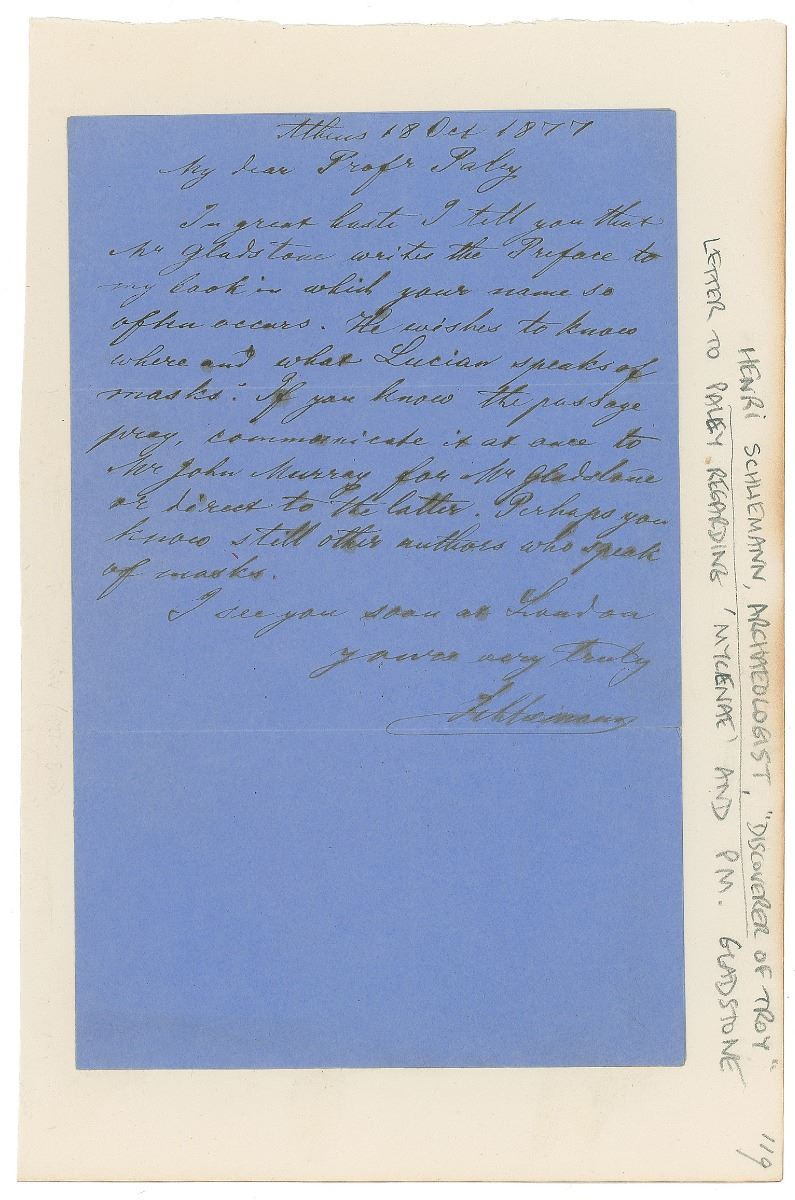 Athens 18 Oct 1877
My dear Profr Paley
In great haste I tell you that
Mr Gladstone writes the Preface to
my book in which your name so
often occurs. He wishes to know
where and what Lucian speaks of
masks. If you know the passage
pray, communicate it at once to
Mr John Murray for Mr Gladstone
or direct to the latter. Perhaps you
know still other authors who speak
of masks.
I see you soon at London
yours very truly
Schliemann
HENRI SCHLIEMANN, ARCHAEOLOGIST, "DISCOVERER OF TROY"
LETTER TO PALEY REGARDING 'MYCENAE' AND PM. GLADSTONE
119